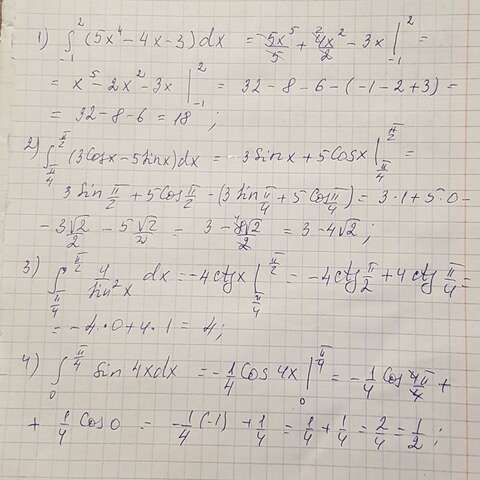 1) ∫₋₁² (5x⁴ - 4x - 3) dx = 5x⁵/5 + 4x²/2 - 3x |₋₁² =
= x⁵ - 2x² - 3x |₋₁² = 32 - 8 - 6 - (-1 - 2 + 3) =
= 32 - 8 - 6 = 18 ;
2) ∫_{π/4}^{π/2} (3Cosx - 5Sinx)dx = 3Sinx + 5Cosx |_{π/4}^{π/2} =
3Sin π/2 + 5Cos π/2 - (3Sin π/4 + 5Cos π/4) = 3·1 + 5·0 -
- 3√2/2 - 5√2/2 = 3 - 8√2/2 = 3 - 4√2 ;
3) ∫_{π/4}^{π/2} 4/Sin²x dx = -4ctgx |_{π/4}^{π/2} = -4ctg π/2 + 4ctg π/4 =
= -4·0 + 4·1 = 4;
4) ∫₀^{π/4} Sin 4xdx = -1/4 Cos 4x |₀^{π/4} = -1/4 Cos 4π/4 +
+ 1/4 Cos0 = -1/4 (-1) + 1/4 = 1/4 + 1/4 = 2/4 = 1/2 ;